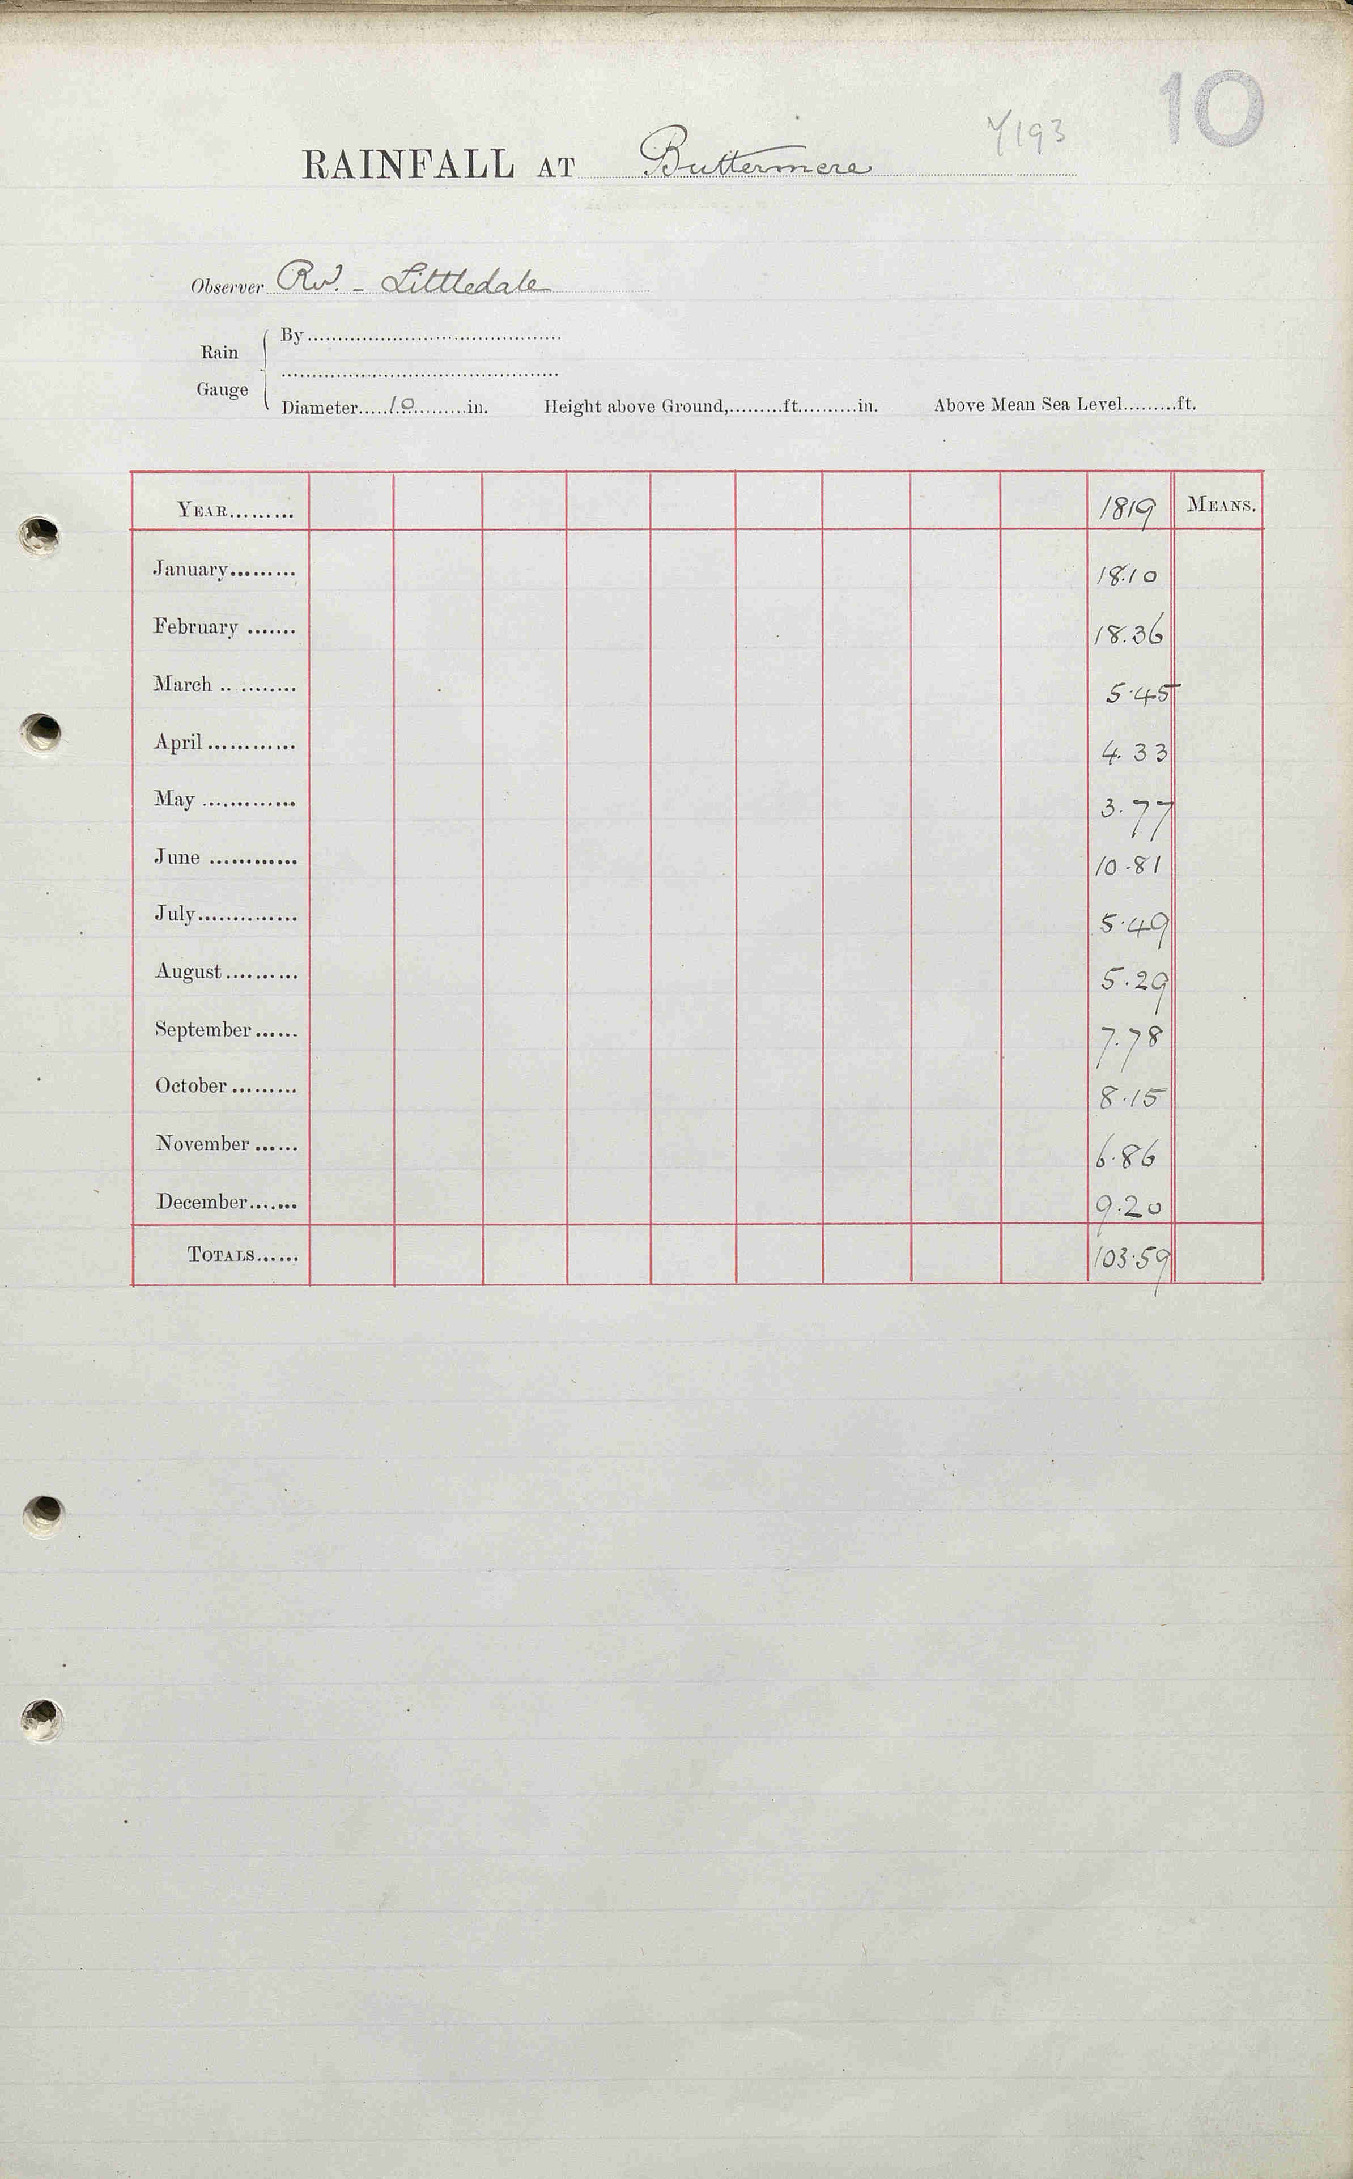 10
Y193
RAINFALL AT Buttermere
Observer Revd. - Littledale
Rain Gauge
By
Diameter 10 in. Height above Ground, ft. in. Above Mean Sea Level ft.
YEAR 1819 MEANS.
January 18.10
February 18.36
March 5.45
April 4.33
May 3.77
June 10.81
July 5.49
August 5.29
September 7.78
October 8.15
November 6.86
December 9.20
TOTALS 103.59